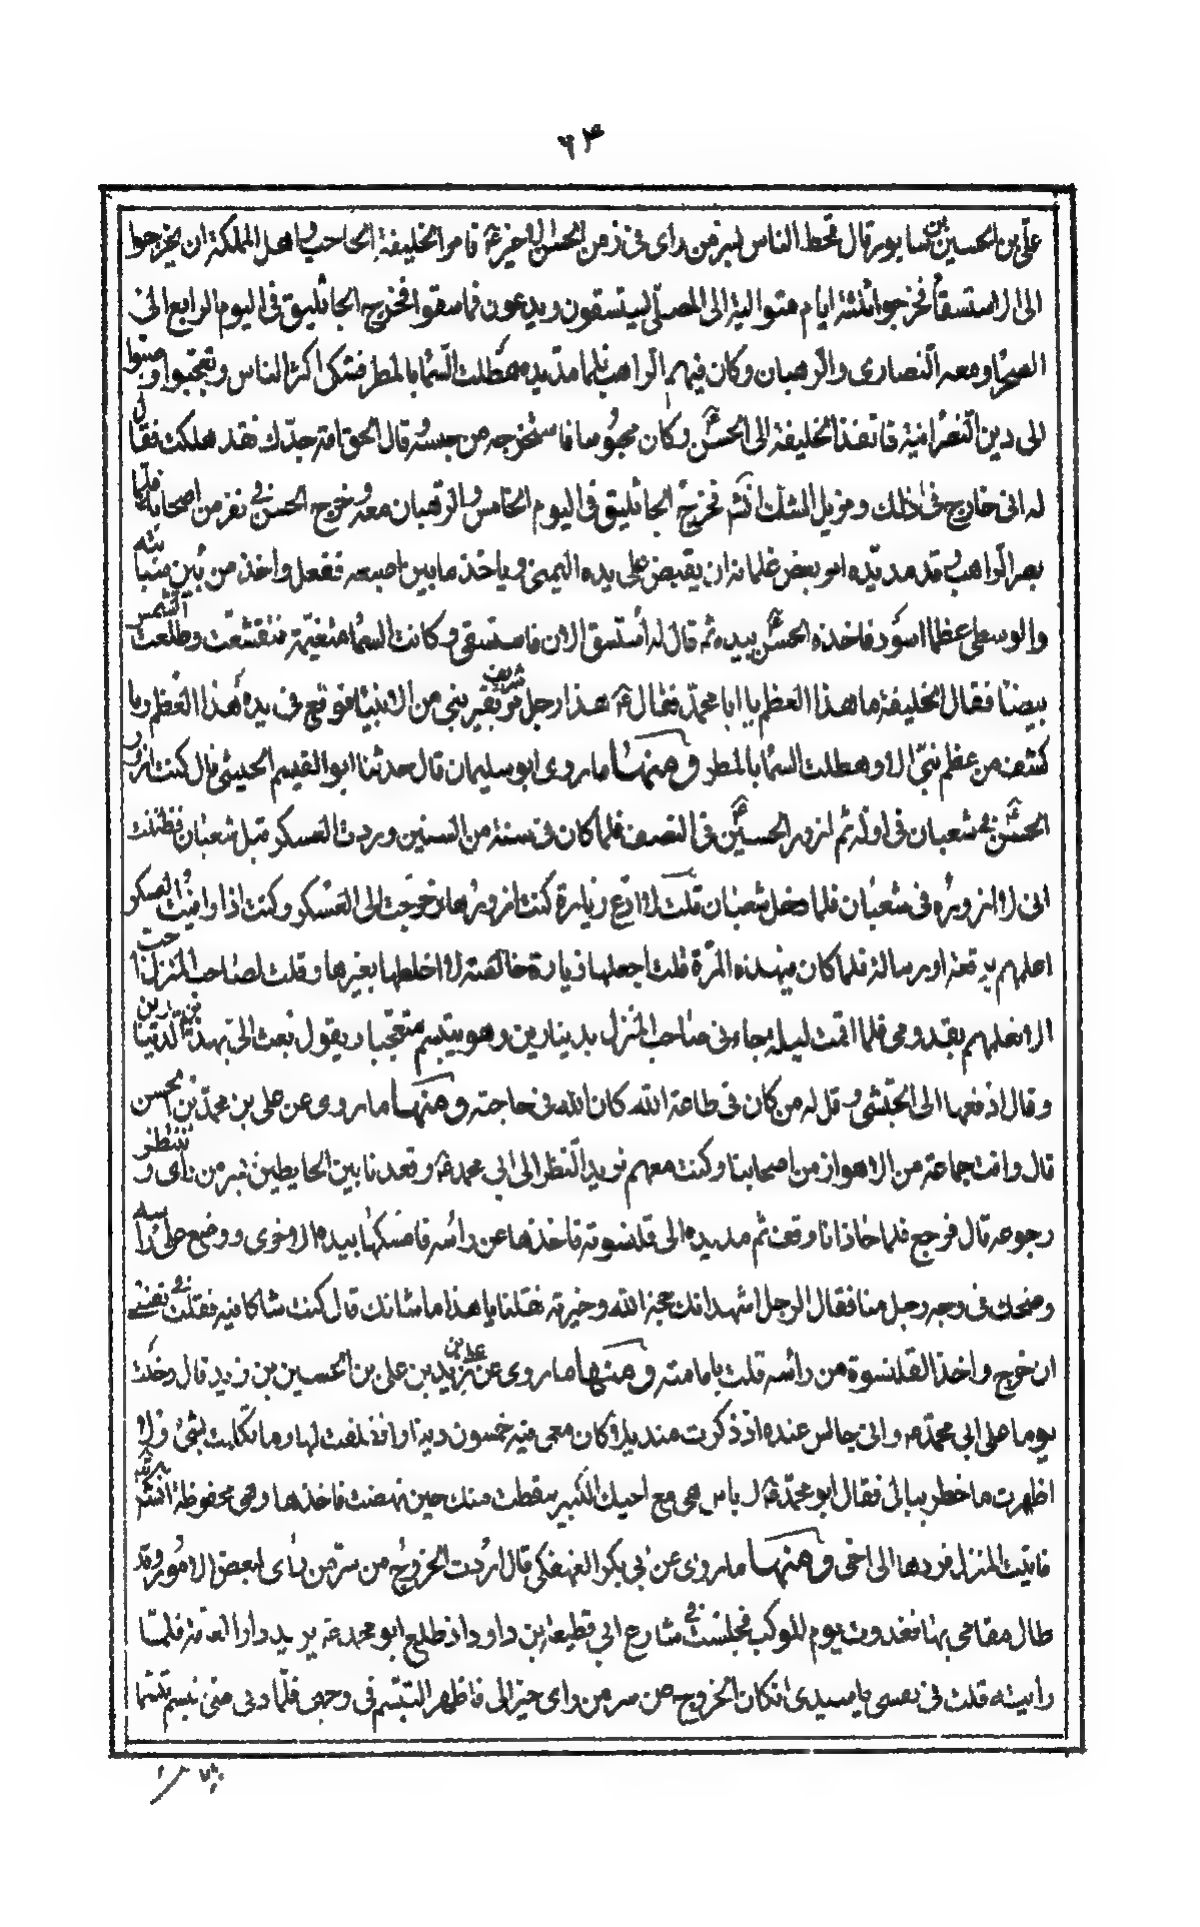 ٦٤
علي بن الحسين بن سابور قال قحط الناس بسر من راى في زمن الحسن الاخير ع فامر الخليفة الحاجب واهل المملكة ان يخرجوا
الى الاستسقا فخرجوا ثلثة ايام متوالية الى المصلى ليستسقون ويدعون فما سقوا فخرج الجاثليق في اليوم الرابع الى
الصحرا ومعه النصارى والرهبان وكان فيهم الراهب فلما مد يده هطلت السما بالمطر فشك اكثر الناس وتعجبوا وصبوا
الى دين النصرانية فانفذ الخليفة الى الحسن ع وكان محبوسا فاستخرجه من حبسه قال الحق امة جدك فقد هلكت فقال
له اني خارج في ذلك ومزيل الشك انشم فخرج الجاثليق في اليوم الخامس والرهبان معه وخرج الحسن في نفر من اصحابه فلما
بصر الراهب وقد مد يده امر بعض غلمانه ان يقبض على يده اليمنى وياخذ ما بين اصبعه ففعل واخذ من بين سبابته
والوسطى عظما اسود فاخذه الحسن ع بيده ثم قال له استسق الان فاستسقى وكانت السما متغيمة فتقشعت وطلعت الشمس
بيضا فقال الخليفة ما هذا العظم يا ابا محمد فقال ع هذا رجل مر بقبر نبي من الانبيا فوقع في يده هذا العظم وما
كشف من عظم نبي الا وهطلت السما بالمطر ومنها ما روى ابو سليمان قال حدثنا ابو القيسم الحبشي قال كنت ازور
الحسن ع بشعبان في اوله ثم ازور الحسين ع في النصف فلما كان في سنة من السنين وردت العسكر قبل شعبان فظننت
اني لا ازوره في شعبان فلما دخل شعبان قلت لا ادع زيارة كنت ازورها وخرجت الى العسكر وكنت اذا وافيت العسكر
اعلمهم برقعة او رسالة فلما كان في هذه المرة قلت اجعلها زيارة خالصة لا اخلطها بغيرها وقلت لصاحب المنزل احب
الا تعلمهم بقدومي فلما اقمت ليلة جاءني صاحب المنزل بدينارين وهو يتبسم متعجبا ويقول بعث الى بهذين الدينارين
وقال ادفعها الى الحبشي وقل له من كان في طاعة الله كان الله في حاجته ومنها ما روى عن علي بن محمد بن الحسن
قال وافت جماعة من الاهواز من اصحابنا وكنت معهم نريد النظر الى ابي محمد ع وقعدنا بين الحايطين بسر من راى وننتظر
رجوعه قال فرجع فلما حاذانا وقف ثم مد يده الى قلنسوته فاخذها عن راسه فامسكها بيده الاخرى ووضع على راسه
وضحك في وجه رجل منا فقال الرجل اشهد انك حجة الله وخيرته فقلنا يا هذا ما شانك قال كنت شاكا فيه فقلت في نفسي
ان خرج واخذ القلنسوة من راسه قلت بامامته ومنها ما روى عن علي بن زيد بن علي بن الحسين بن زيد قال دخلت
يوما على ابي محمد ع واني جالس عنده اذ ذكرت منديلا كان معي فيه خمسون دينارا فقلقت لها وما تكلمت بشئ ولا
اظهرت ما خطر ببالي فقال ابو محمد ع لا باس هي مع اخيك الكبير سقطت منك حين نهضت فاخذها وهي محفوظة انشا الله
فاتيت المنزل فردها الى اخي ومنها ما روى عن ابي بكر الفهفكي قال اردت الخروج من سر من راى لبعض الامور وقد
طال مقامي بها فغدوت يوم الموكب فجلست في شارع ابي قطيعة بن داود اذ طلع ابو محمد ع يريد دار العامة فلما
رايته قلت في نفسي يا سيدي ان كان الخروج من سر من راى خيرا لي فاظهر التبسم في وجهي فلما دنى مني تبسم تبسما